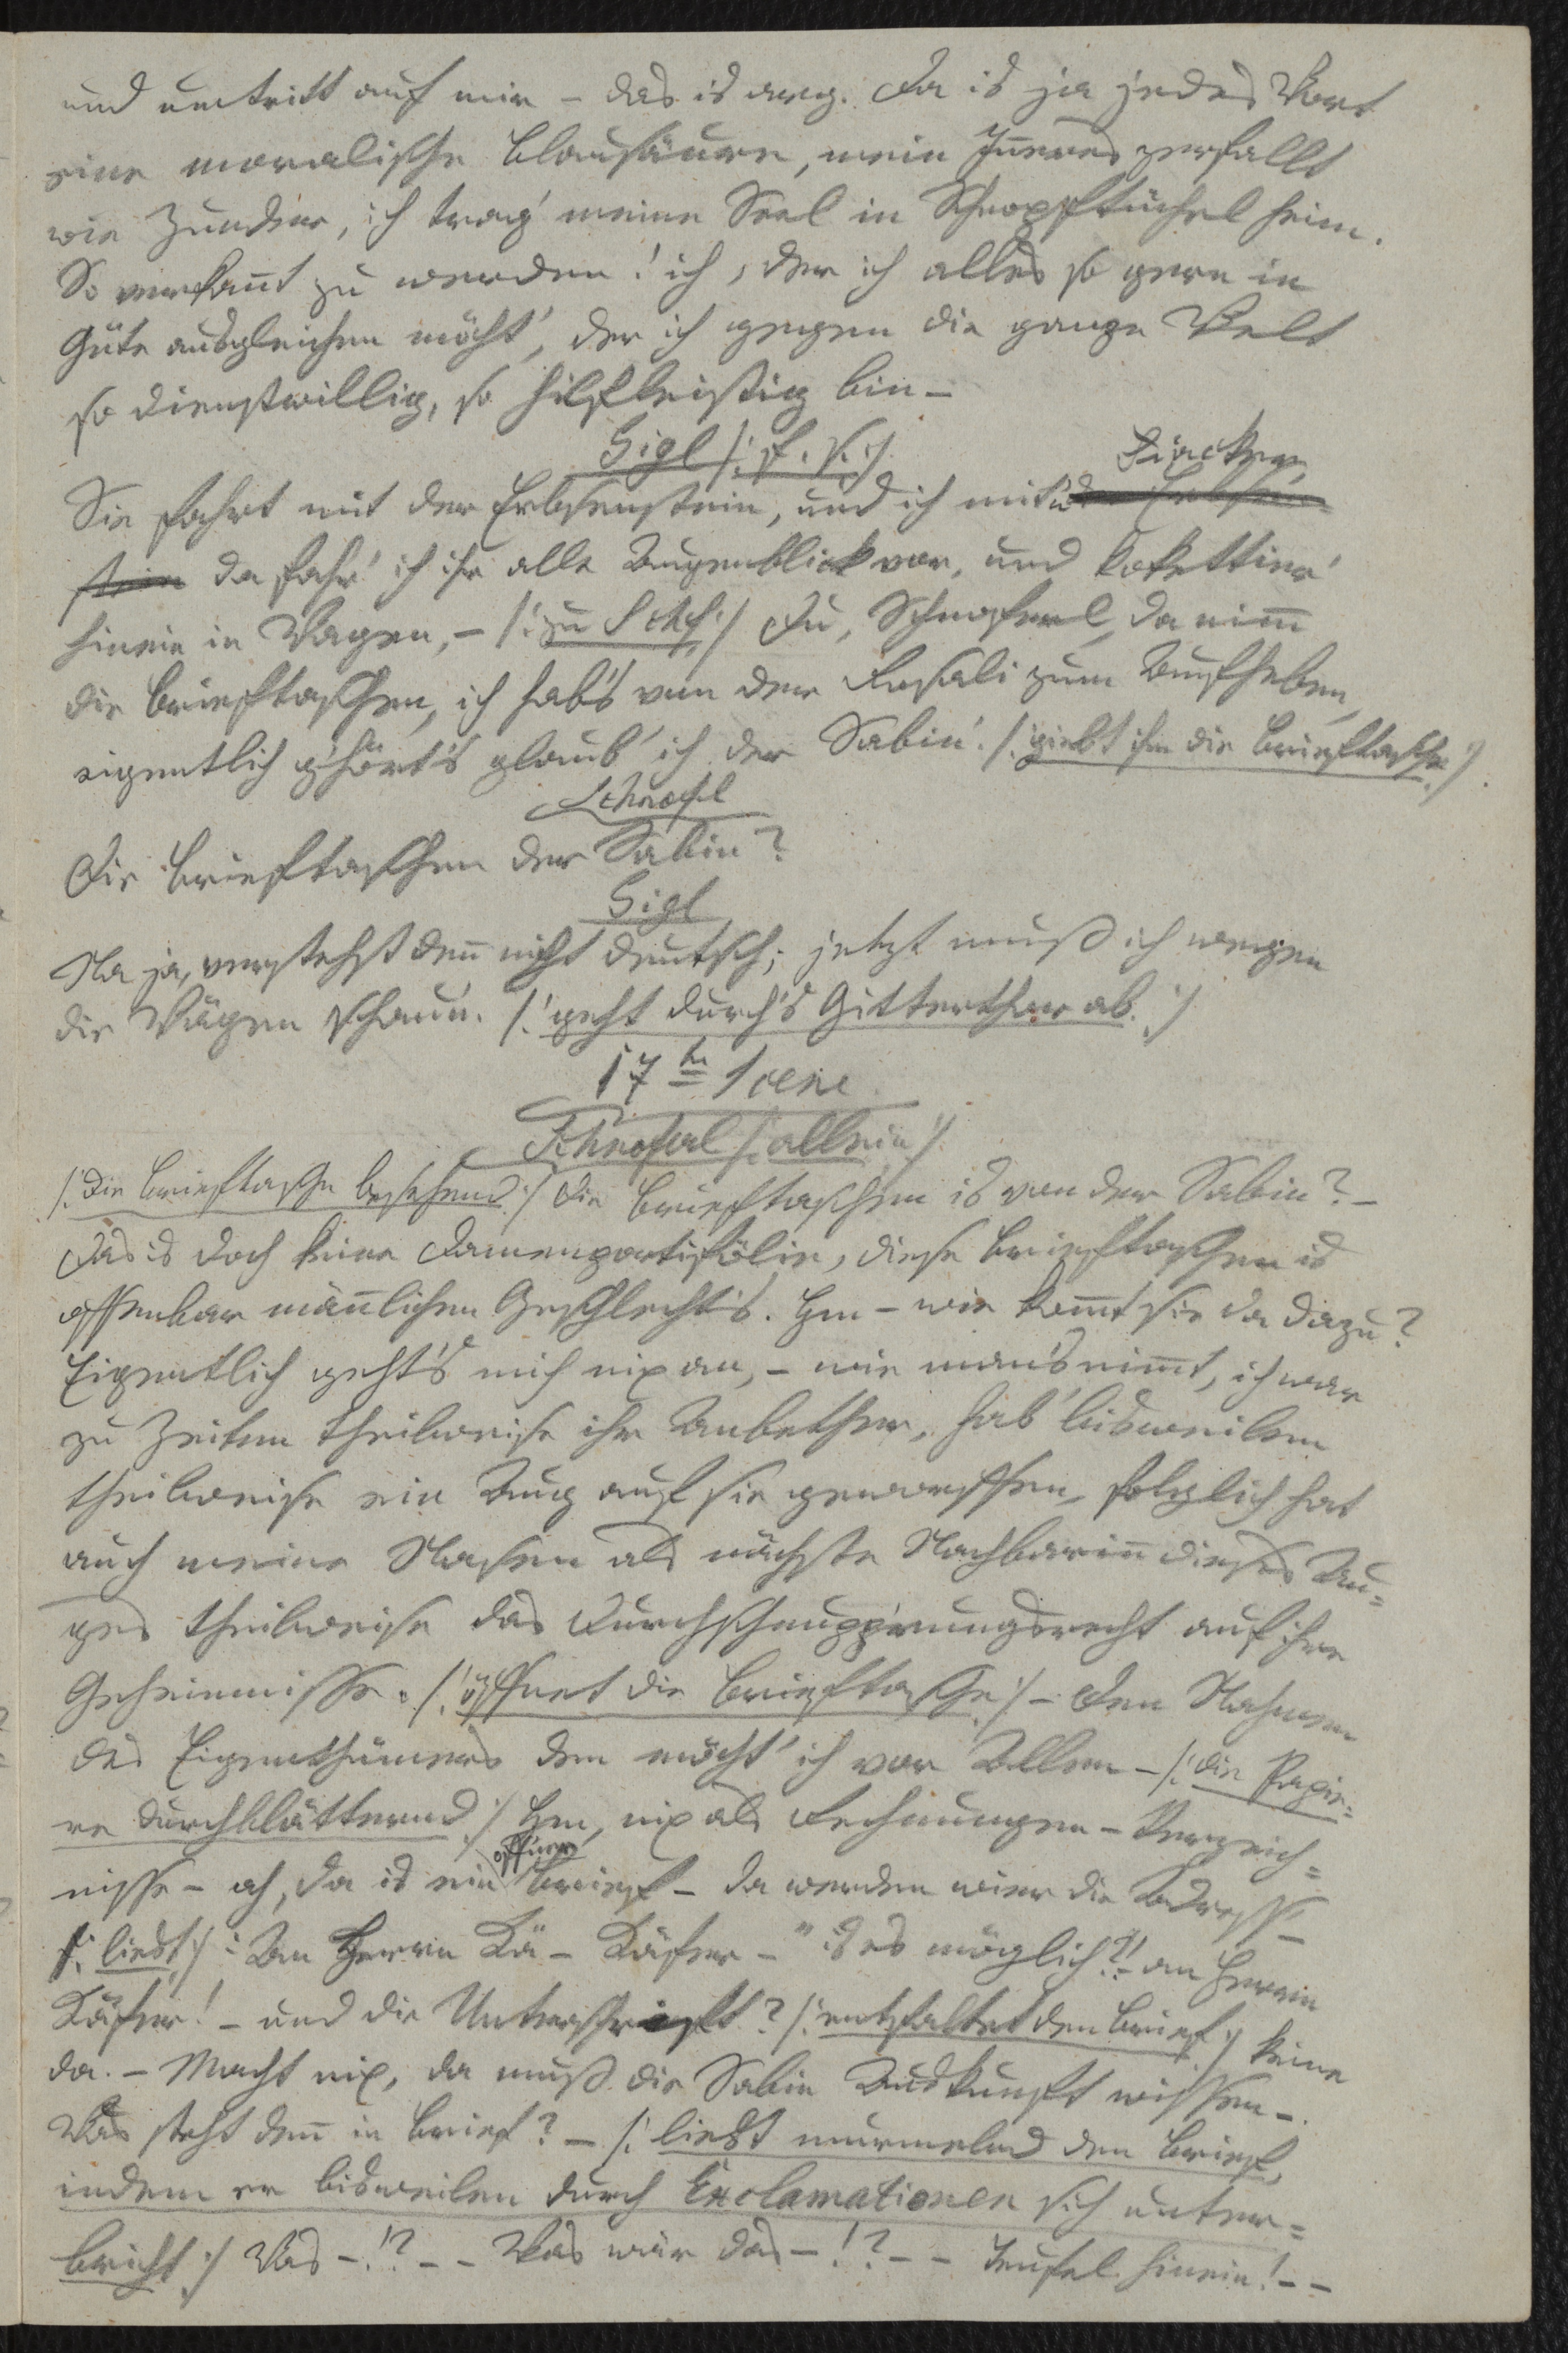 und umtritt auf mir – das is arg. Da is ja jedes Wort
eine moralische Blausäure, mein Inneres zerfallt
wie Zunder, ich trag' meine Seel in Schnopftüchel heim.
So verkannt zu werden! ich, der ich alles so gern in
Güte ausgleichen möcht', der ich gegen die ganze Welt
so dienstwillig, so hilfleistig bin –
Sigl /: f. s. :/
Sie fahrt mit der Erbsenstein, und ich mit'n Fiacker,
da fahr' ich ihr alle Augenblick vor, und kokettier'
hinein in Wagen, – /: zu Schf :/ Du, Schnoferl, da nimm
die Brieftaschen, ich hab's von der Rosali zum Aufheben,
eigentlich g'hört's glaub' ich der Sabin'. /: giebt ihm die Brieftasche :/
Schnofl
Die Brieftaschen der Sabin?
Sigl
Na ja, verstehst denn nicht deutsch; jetzt muß ich wegen
die Wägen schau'n. /: geht durch's Gitterthor ab. :/
17te Scene
Schnoferl /: allein :/
/: die Brieftasche besehend :/ Die Brieftaschen is von der Sabin? –
Das is doch keine Damenportifölie, diese Brieftaschen is
offenbar männlichen Geschlecht's. Hm – wie kommt sie da dazu?
Eigentlich geht's mich nix an, – wie man's nimmt, ich war
zu Zeiten theilweise ihr Anbether, hab' bisweilen
theilweise ein Aug auf sie geworffen, folglich hat
auch meine Nasen als nächste Nachbarinn dieses Au=
ges theilweise das Durchschnuppr'ungsrecht auf ihre
Geheimnisse. /: öffnet die Brieftasche :/ – Den Nahmen
des Eigenthümers den möcht' ich vor Allem – /: die Papie=
re durchblätternd :/ Hm, nix als Rechnungen – Verzeich=
nisse – ah, da is ein offner Brief – da werden wier die Adress –
/: liest :/ "An Herrn Kä – Käfer –" is es möglich?! – an Herrn
Käfer! – und die Unterschrift? /: entfaltet den Brief :/ keine
da. – Macht nix, da muß die Sabin Auskunft wissen –
Was steht denn in Brief? – /: liest murmelnd den Brief,
indem er bisweilen durch Exclamationen sich unter=
bricht :/ Was –!? – – Was wär das –!? – – Teufel hinein! – –